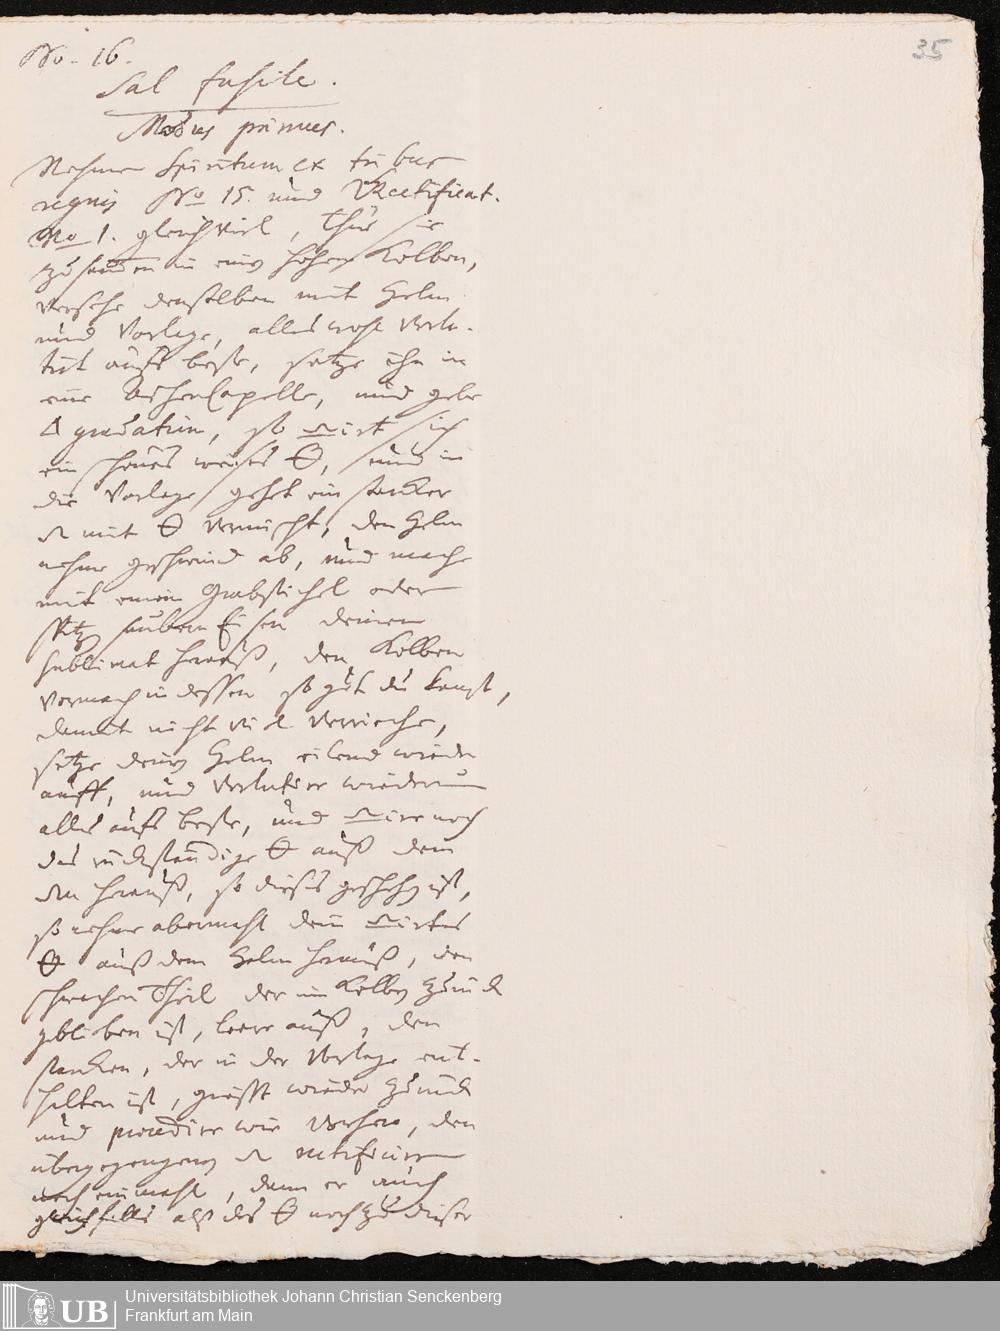 35
No. 16.
Sal fusile.
Modus primus.
Nehme Spiritum ex tribus
regnis No 15. und Rectificat.
No 1. gleich viel, thue sie
zusammen in einen hohen Kolben,
versehe denselben mit Helm
und Vorlage, alles wohl verlu-
tirt aufs beste, setze ihn in
eine Aschen Capelle, und gebe
🜂 gradatim, so 🝞irt sich
ein schönes weißes 🜔, und in
die Vorlage gehet ein starker
mit 🜔 vermischt, den Helm
nehme geschwind ab, und mache
mit einem Grabstichel oder
spitz saubern Eisen deinen
sublimat herauß, den Kolben
vermach in dessen so gut du kanst,
damit nicht viel verrieche,
setze deinen Helm eilend wieder
auff, und verlutire wiederum
alles aufs beste, und 🝞ire noch
das rückständige 🜔 auß dem
herauß, so dieses geschehen ist,
so nehme abermahl dein 🝞irtes
🜔 auß dem Helm herauß, den
schwachen Theil der im Kolben zurück
geblieben ist, leere auß, den
starken, der in der Vorlage ent-
halten ist, gieße wieder zurück
und procedire wie vorhero, den
übergegangenen rectificire
noch einmahl, dann er auch
gleichfalls alß das 🜔 noch zu dieser
UB
Universitätsbibliothek Johann Christian Senckenberg
Frankfurt am Main